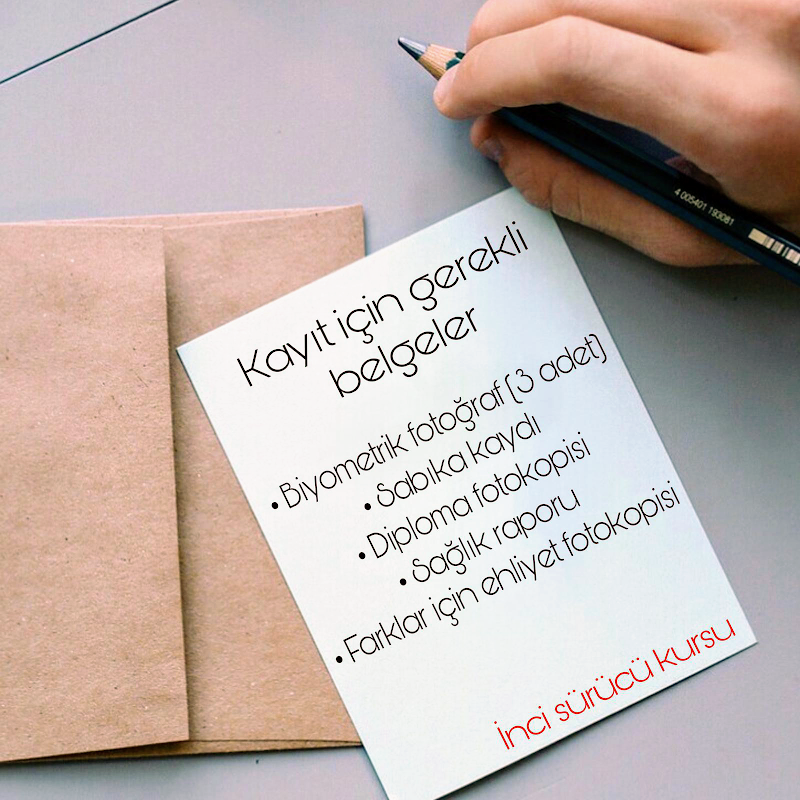 4 005401 193081
Kayıt için gerekli
belgeler
• Biyometrik fotoğraf (3 adet)
• Sabıka kaydı
• Diploma fotokopisi
• Sağlık raporu
• Farklar için ehliyet fotokopisi
İnci sürücü kursu